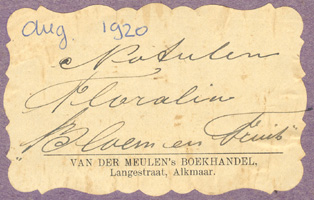 Aug. 1920
Notulen
Floralia
"Bloem en Fruit"
VAN DER MEULEN's BOEKHANDEL,
Langestraat, Alkmaar.